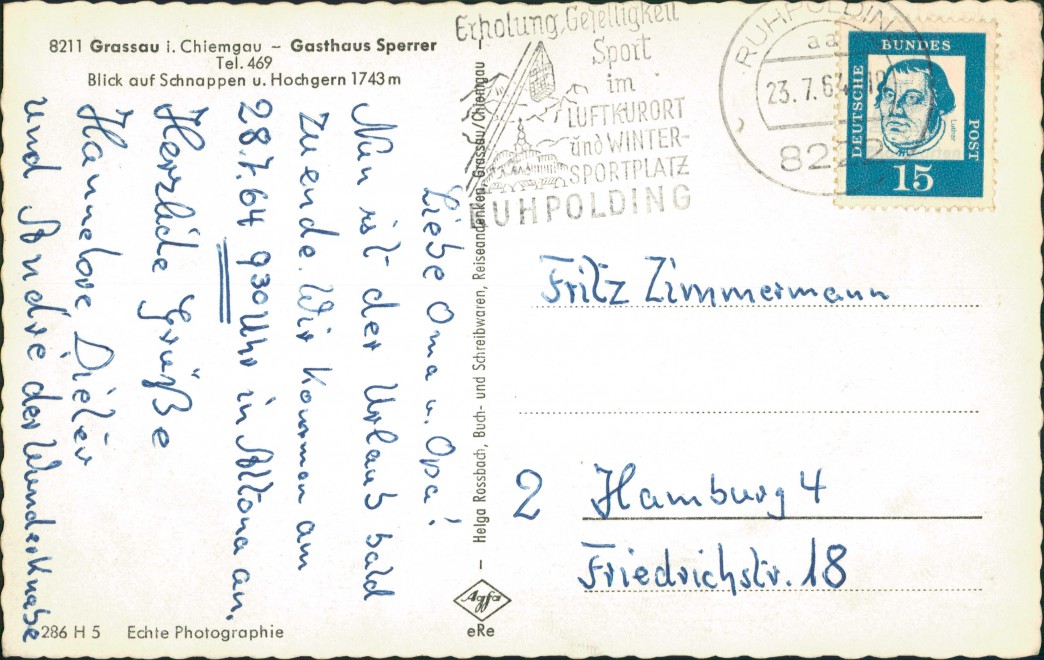 8211 Grassau i. Chiemgau – Gasthaus Sperrer
Tel. 469
Blick auf Schnappen u. Hochgern 1743 m
Liebe Oma u. Opa!
Nun ist der Urlaub bald
zu ende. Wir kommen am
28.7.64 930 Uhr in Altona an.
Herzliche Grüße
Hannelore Dieter
und Andre der Wunderknabe
286 H 5 Echte Photographie
– Helga Rossbach, Buch- und Schreibwaren, Reiseandenken, Grassau/Chiemgau –
Agfa
eRe
Erholung, Geselligkeit
Sport
im
LUFTKURORT
und WINTER-
SPORTPLATZ
RUHPOLDING
RUHPOLDING
aa
23.7.64
822
DEUTSCHE
BUNDES
POST
Luther
15
Fritz Zimmermann
2 Hamburg 4
Friedrichstr. 18